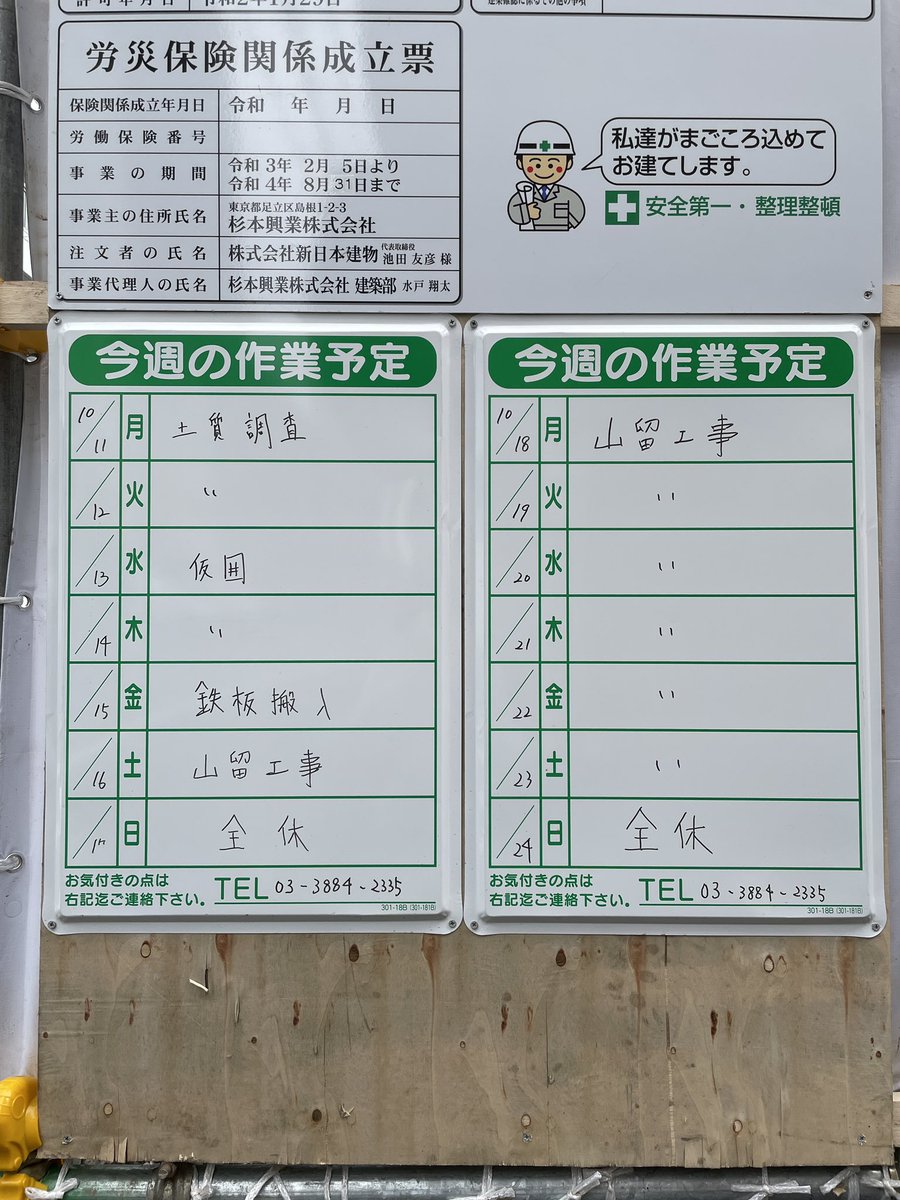 許可年月日 令和2年1月29日
労災保険関係成立票
保険関係成立年月日 令和 年 月 日
労働保険番号
事業の期間 令和 3年 2月 5日より
令和 4年 8月31日まで
事業主の住所氏名 東京都足立区島根1-2-3
杉本興業株式会社
注文者の氏名 株式会社新日本建物 代表取締役
池田 友彦 様
事業代理人の氏名 杉本興業株式会社 建築部 水戸 翔太
私達がまごころ込めて
お建てします。
安全第一・整理整頓
今週の作業予定
10/11 月 土質調査
/12 火 〃
/13 水 仮囲
/14 木 〃
/15 金 鉄板搬入
/16 土 山留工事
/17 日 全休
お気付きの点は
右記迄ご連絡下さい。 TEL 03-3884-2335
301-18B (301-181B)
今週の作業予定
10/18 月 山留工事
/19 火 〃
/20 水 〃
/21 木 〃
/22 金 〃
/23 土 〃
/24 日 全休
お気付きの点は
右記迄ご連絡下さい。 TEL 03-3884-2335
301-18B (301-181B)